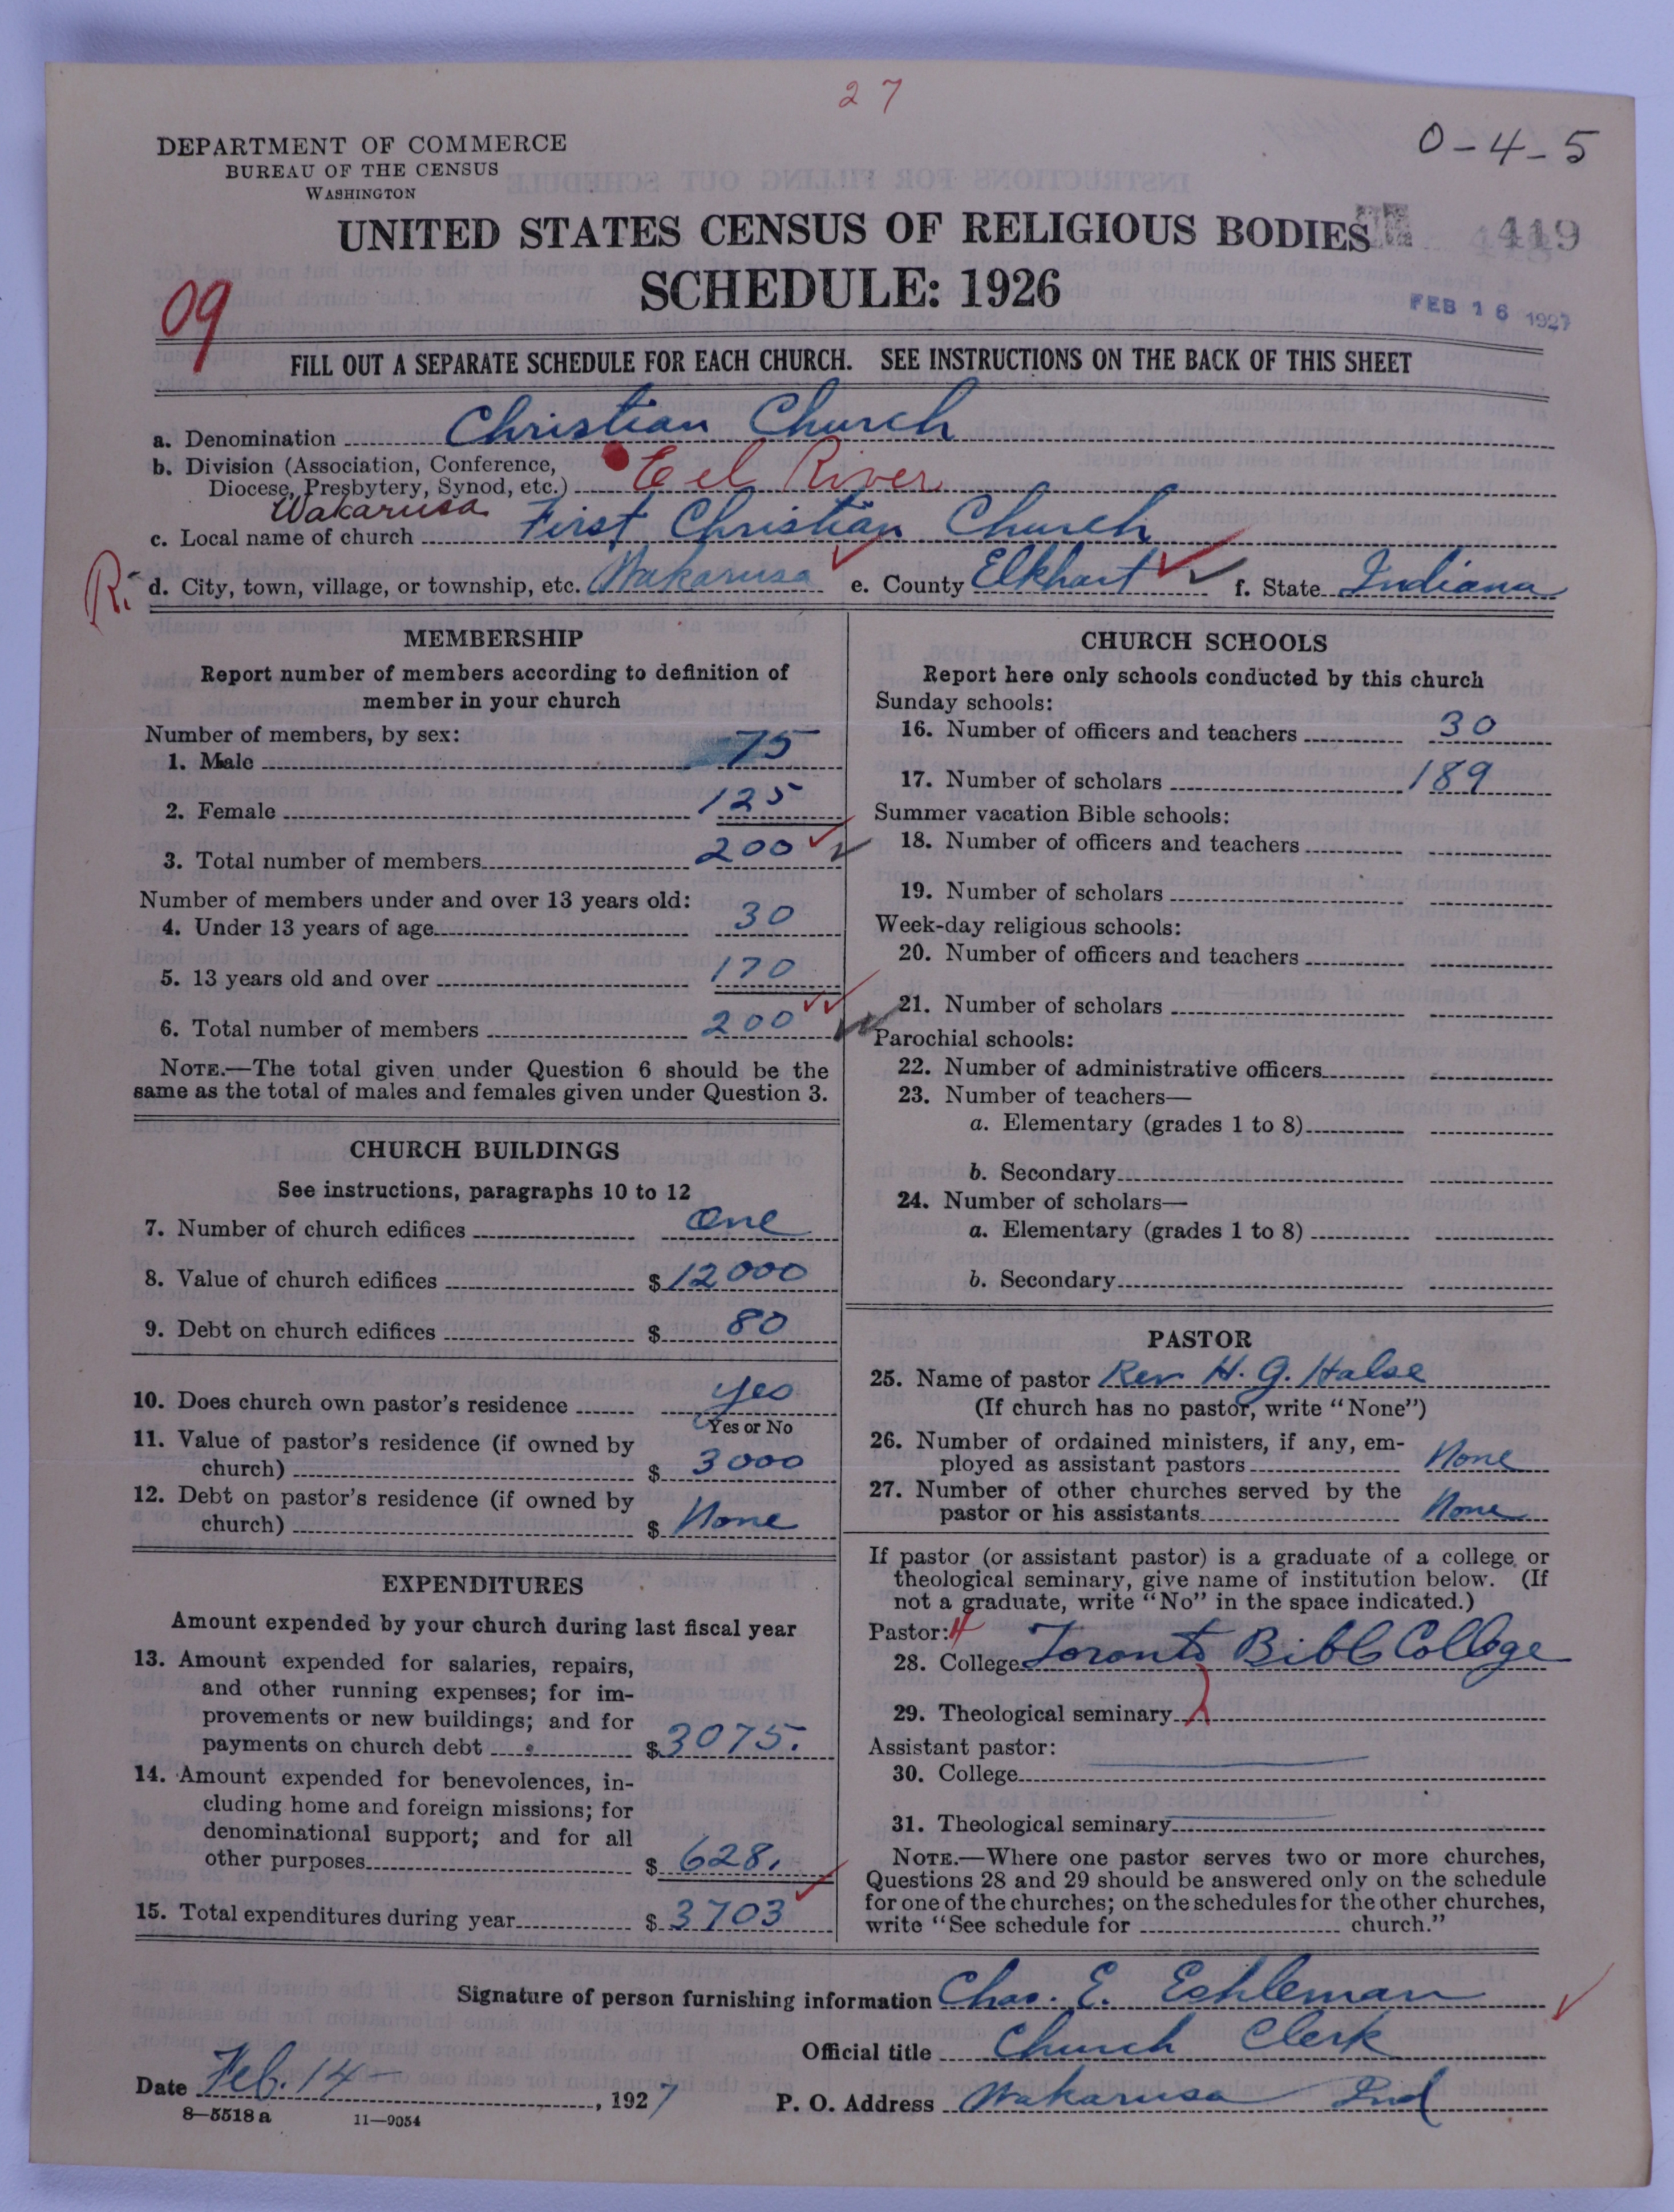 27
0-4-5
DEPARTMENT OF COMMERCE
BUREAU OF THE CENSUS
WASHINGTON
UNITED STATES CENSUS OF RELIGIOUS BODIES
419
SCHEDULE: 1926
09
FEB 16 1927
FILL OUT A SEPARATE SCHEDULE FOR EACH CHURCH. SEE INSTRUCTIONS ON THE BACK OF THIS SHEET
a. Denomination Christian Church
b. Division (Association, Conference,
Diocese, Presbytery, Synod, etc.) Eel River
Wakarusa
c. Local name of church First Christian Church
R. d. City, town, village, or township, etc. Wakarusa e. County Elkhart f. State Indiana
MEMBERSHIP
Report number of members according to definition of
member in your church
Number of members, by sex:
1. Male 75
2. Female 125
3. Total number of members 200
Number of members under and over 13 years old:
4. Under 13 years of age 30
5. 13 years old and over 170
6. Total number of members 200
NOTE.—The total given under Question 6 should be the
same as the total of males and females given under Question 3.
CHURCH BUILDINGS
See instructions, paragraphs 10 to 12
7. Number of church edifices One
8. Value of church edifices $12000
9. Debt on church edifices $ 80
10. Does church own pastor's residence yes
Yes or No
11. Value of pastor's residence (if owned by
church) $ 3000
12. Debt on pastor's residence (if owned by
church) $ None
EXPENDITURES
Amount expended by your church during last fiscal year
13. Amount expended for salaries, repairs,
and other running expenses; for im-
provements or new buildings; and for
payments on church debt $3075.
14. Amount expended for benevolences, in-
cluding home and foreign missions; for
denominational support; and for all
other purposes $ 628.
15. Total expenditures during year $ 3703
CHURCH SCHOOLS
Report here only schools conducted by this church
Sunday schools:
16. Number of officers and teachers 30
17. Number of scholars 189
Summer vacation Bible schools:
18. Number of officers and teachers
19. Number of scholars
Week-day religious schools:
20. Number of officers and teachers
21. Number of scholars
Parochial schools:
22. Number of administrative officers
23. Number of teachers—
a. Elementary (grades 1 to 8)
b. Secondary
24. Number of scholars—
a. Elementary (grades 1 to 8)
b. Secondary
PASTOR
25. Name of pastor Rev H. G. Halse
(If church has no pastor, write "None")
26. Number of ordained ministers, if any, em-
ployed as assistant pastors None
27. Number of other churches served by the
pastor or his assistants None
If pastor (or assistant pastor) is a graduate of a college or
theological seminary, give name of institution below. (If
not a graduate, write "No" in the space indicated.)
Pastor:
28. College Toronto Bible College
29. Theological seminary
Assistant pastor:
30. College
31. Theological seminary
NOTE.—Where one pastor serves two or more churches,
Questions 28 and 29 should be answered only on the schedule
for one of the churches; on the schedules for the other churches,
write "See schedule for church."
Signature of person furnishing information Chas. E. Eshleman
Official title Church Clerk
Date Feb. 14 , 1927
P. O. Address Wakarusa Ind
8—5518 a 11—9054